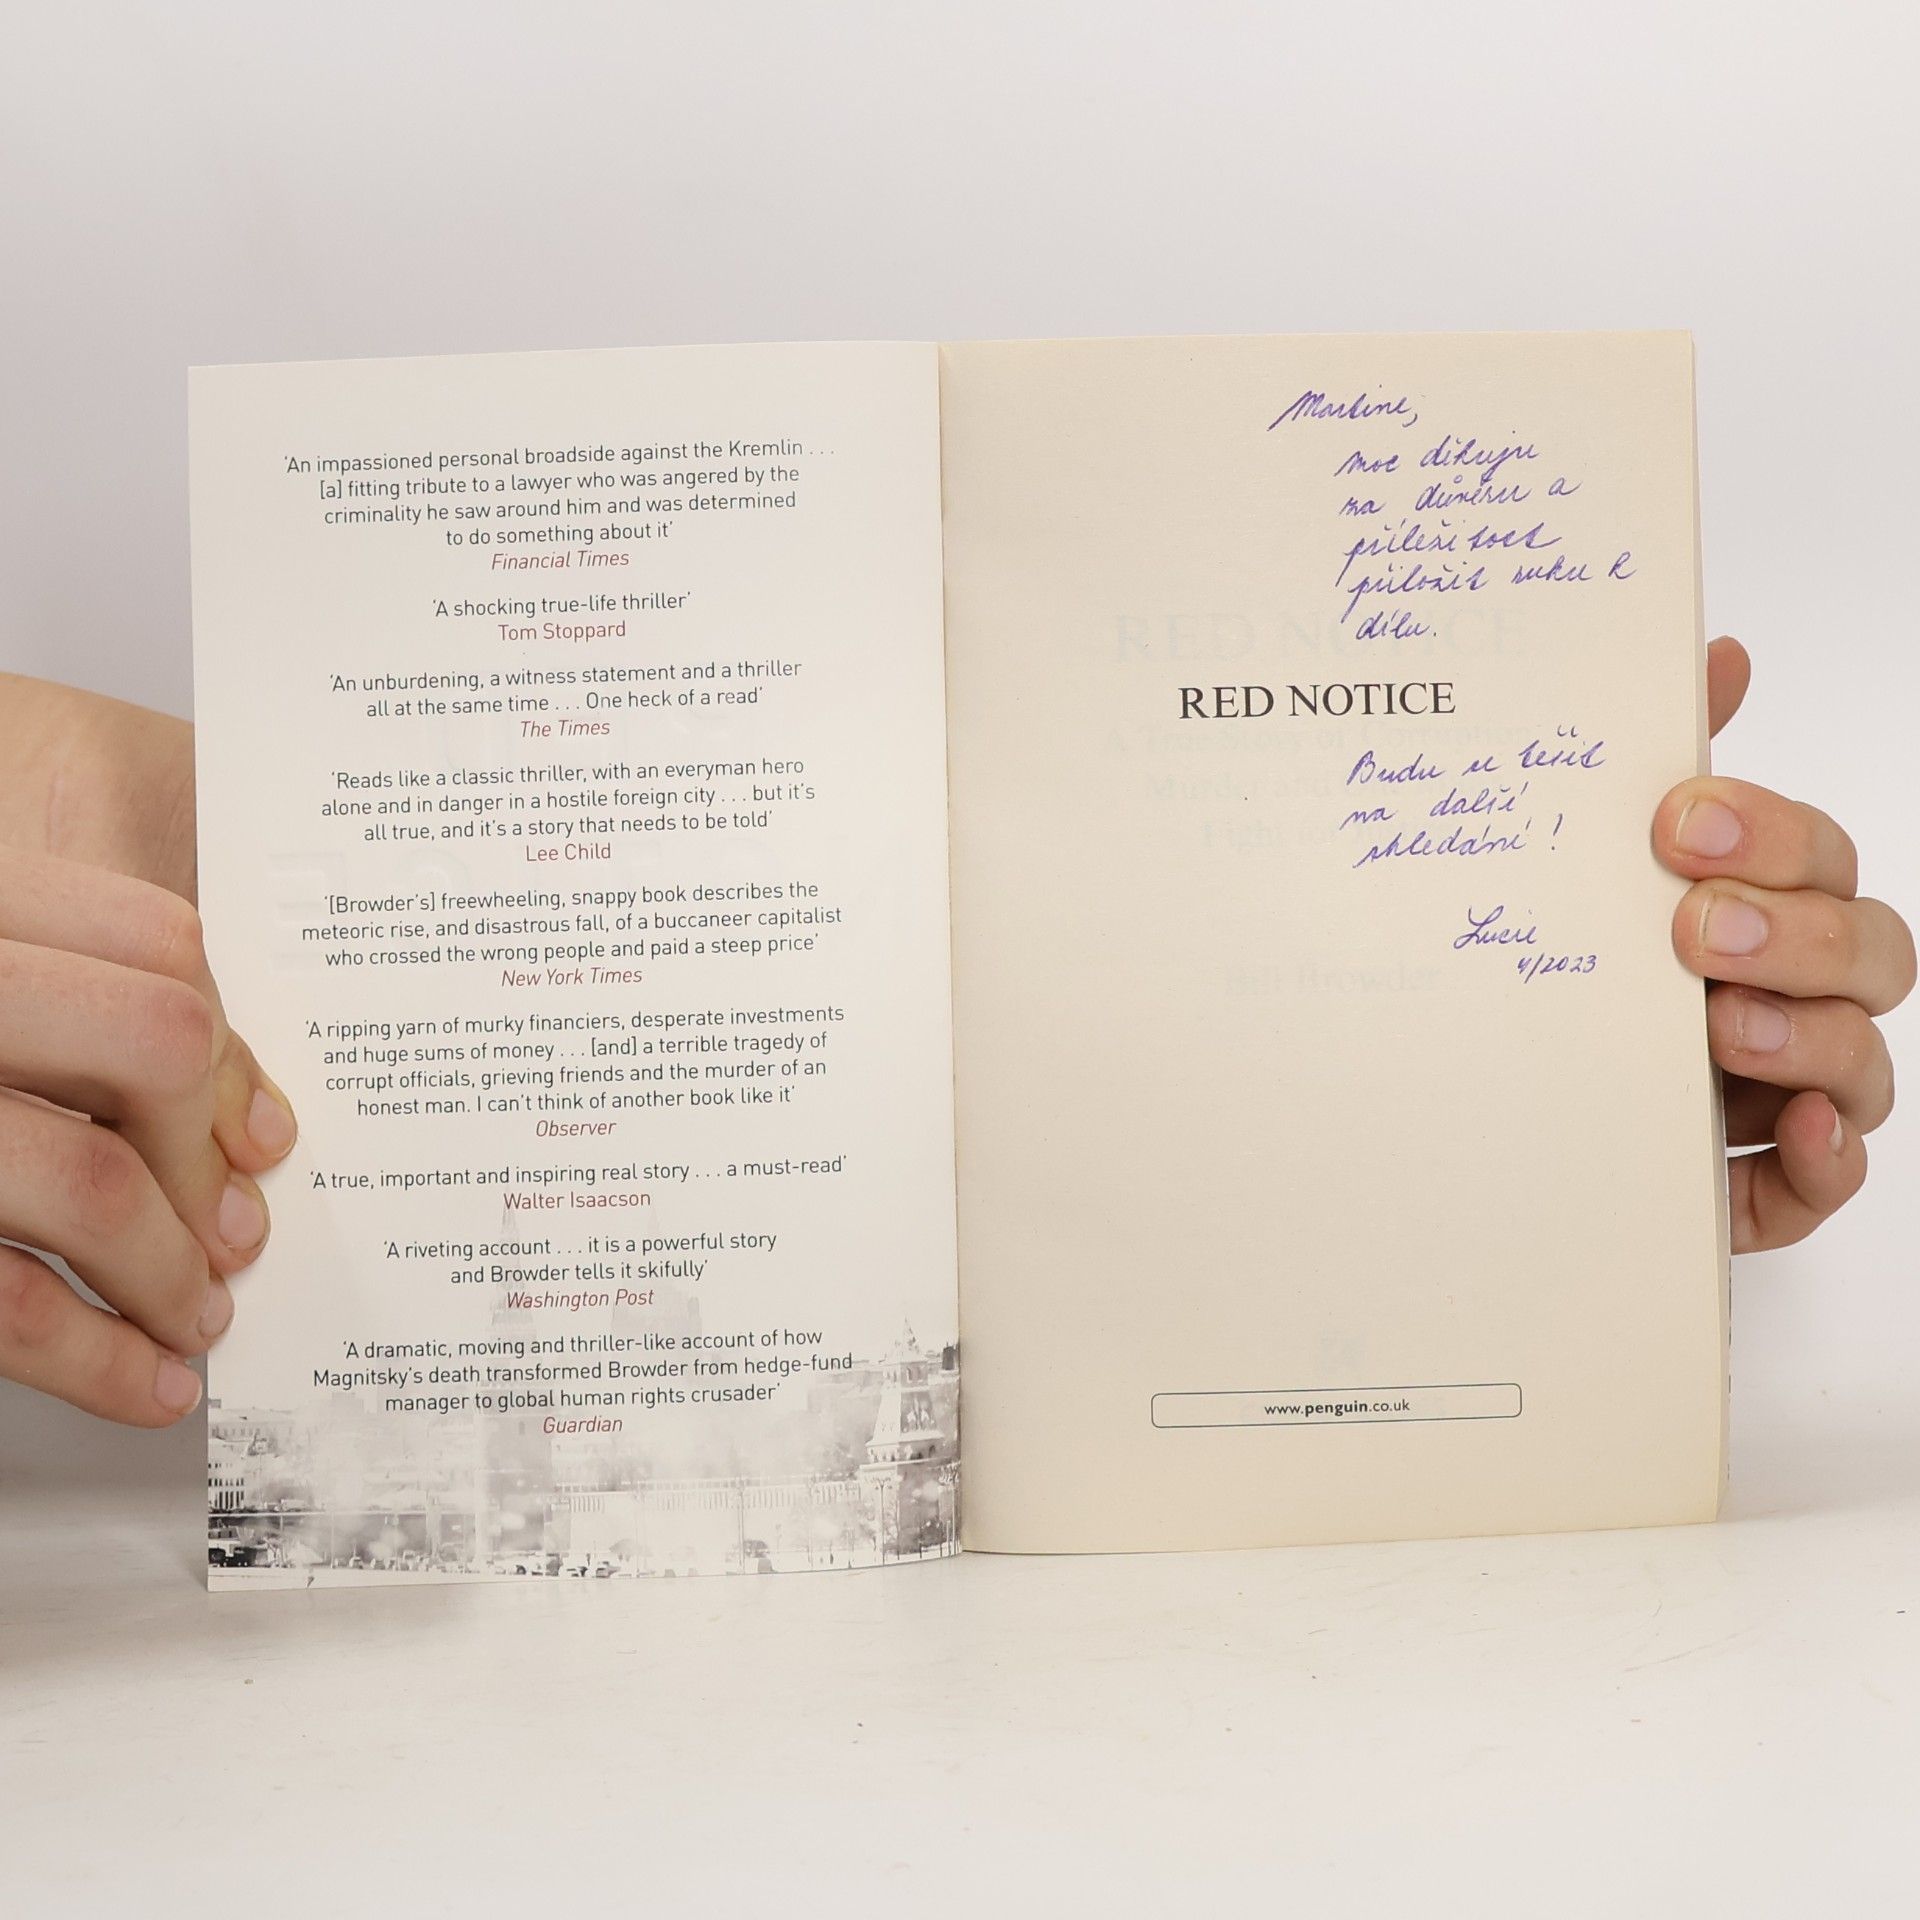 ‘An impassioned personal broadside against the Kremlin . . .
[a] fitting tribute to a lawyer who was angered by the
criminality he saw around him and was determined
to do something about it’
Financial Times
‘A shocking true-life thriller’
Tom Stoppard
‘An unburdening, a witness statement and a thriller
all at the same time . . . One heck of a read’
The Times
‘Reads like a classic thriller, with an everyman hero
alone and in danger in a hostile foreign city . . . but it’s
all true, and it’s a story that needs to be told’
Lee Child
‘[Browder’s] freewheeling, snappy book describes the
meteoric rise, and disastrous fall, of a buccaneer capitalist
who crossed the wrong people and paid a steep price’
New York Times
‘A ripping yarn of murky financiers, desperate investments
and huge sums of money . . . [and] a terrible tragedy of
corrupt officials, grieving friends and the murder of an
honest man. I can’t think of another book like it’
Observer
‘A true, important and inspiring real story . . . a must-read’
Walter Isaacson
‘A riveting account . . . it is a powerful story
and Browder tells it skifully’
Washington Post
‘A dramatic, moving and thriller-like account of how
Magnitsky’s death transformed Browder from hedge-fund
manager to global human rights crusader’
Guardian
Martine,
moc děkuju
za důvěru a
příležitost
přiložit ruku k
dílu.
RED NOTICE
Budu se těšit
na další
shledání!
Lucie
4/2023
www.penguin.co.uk